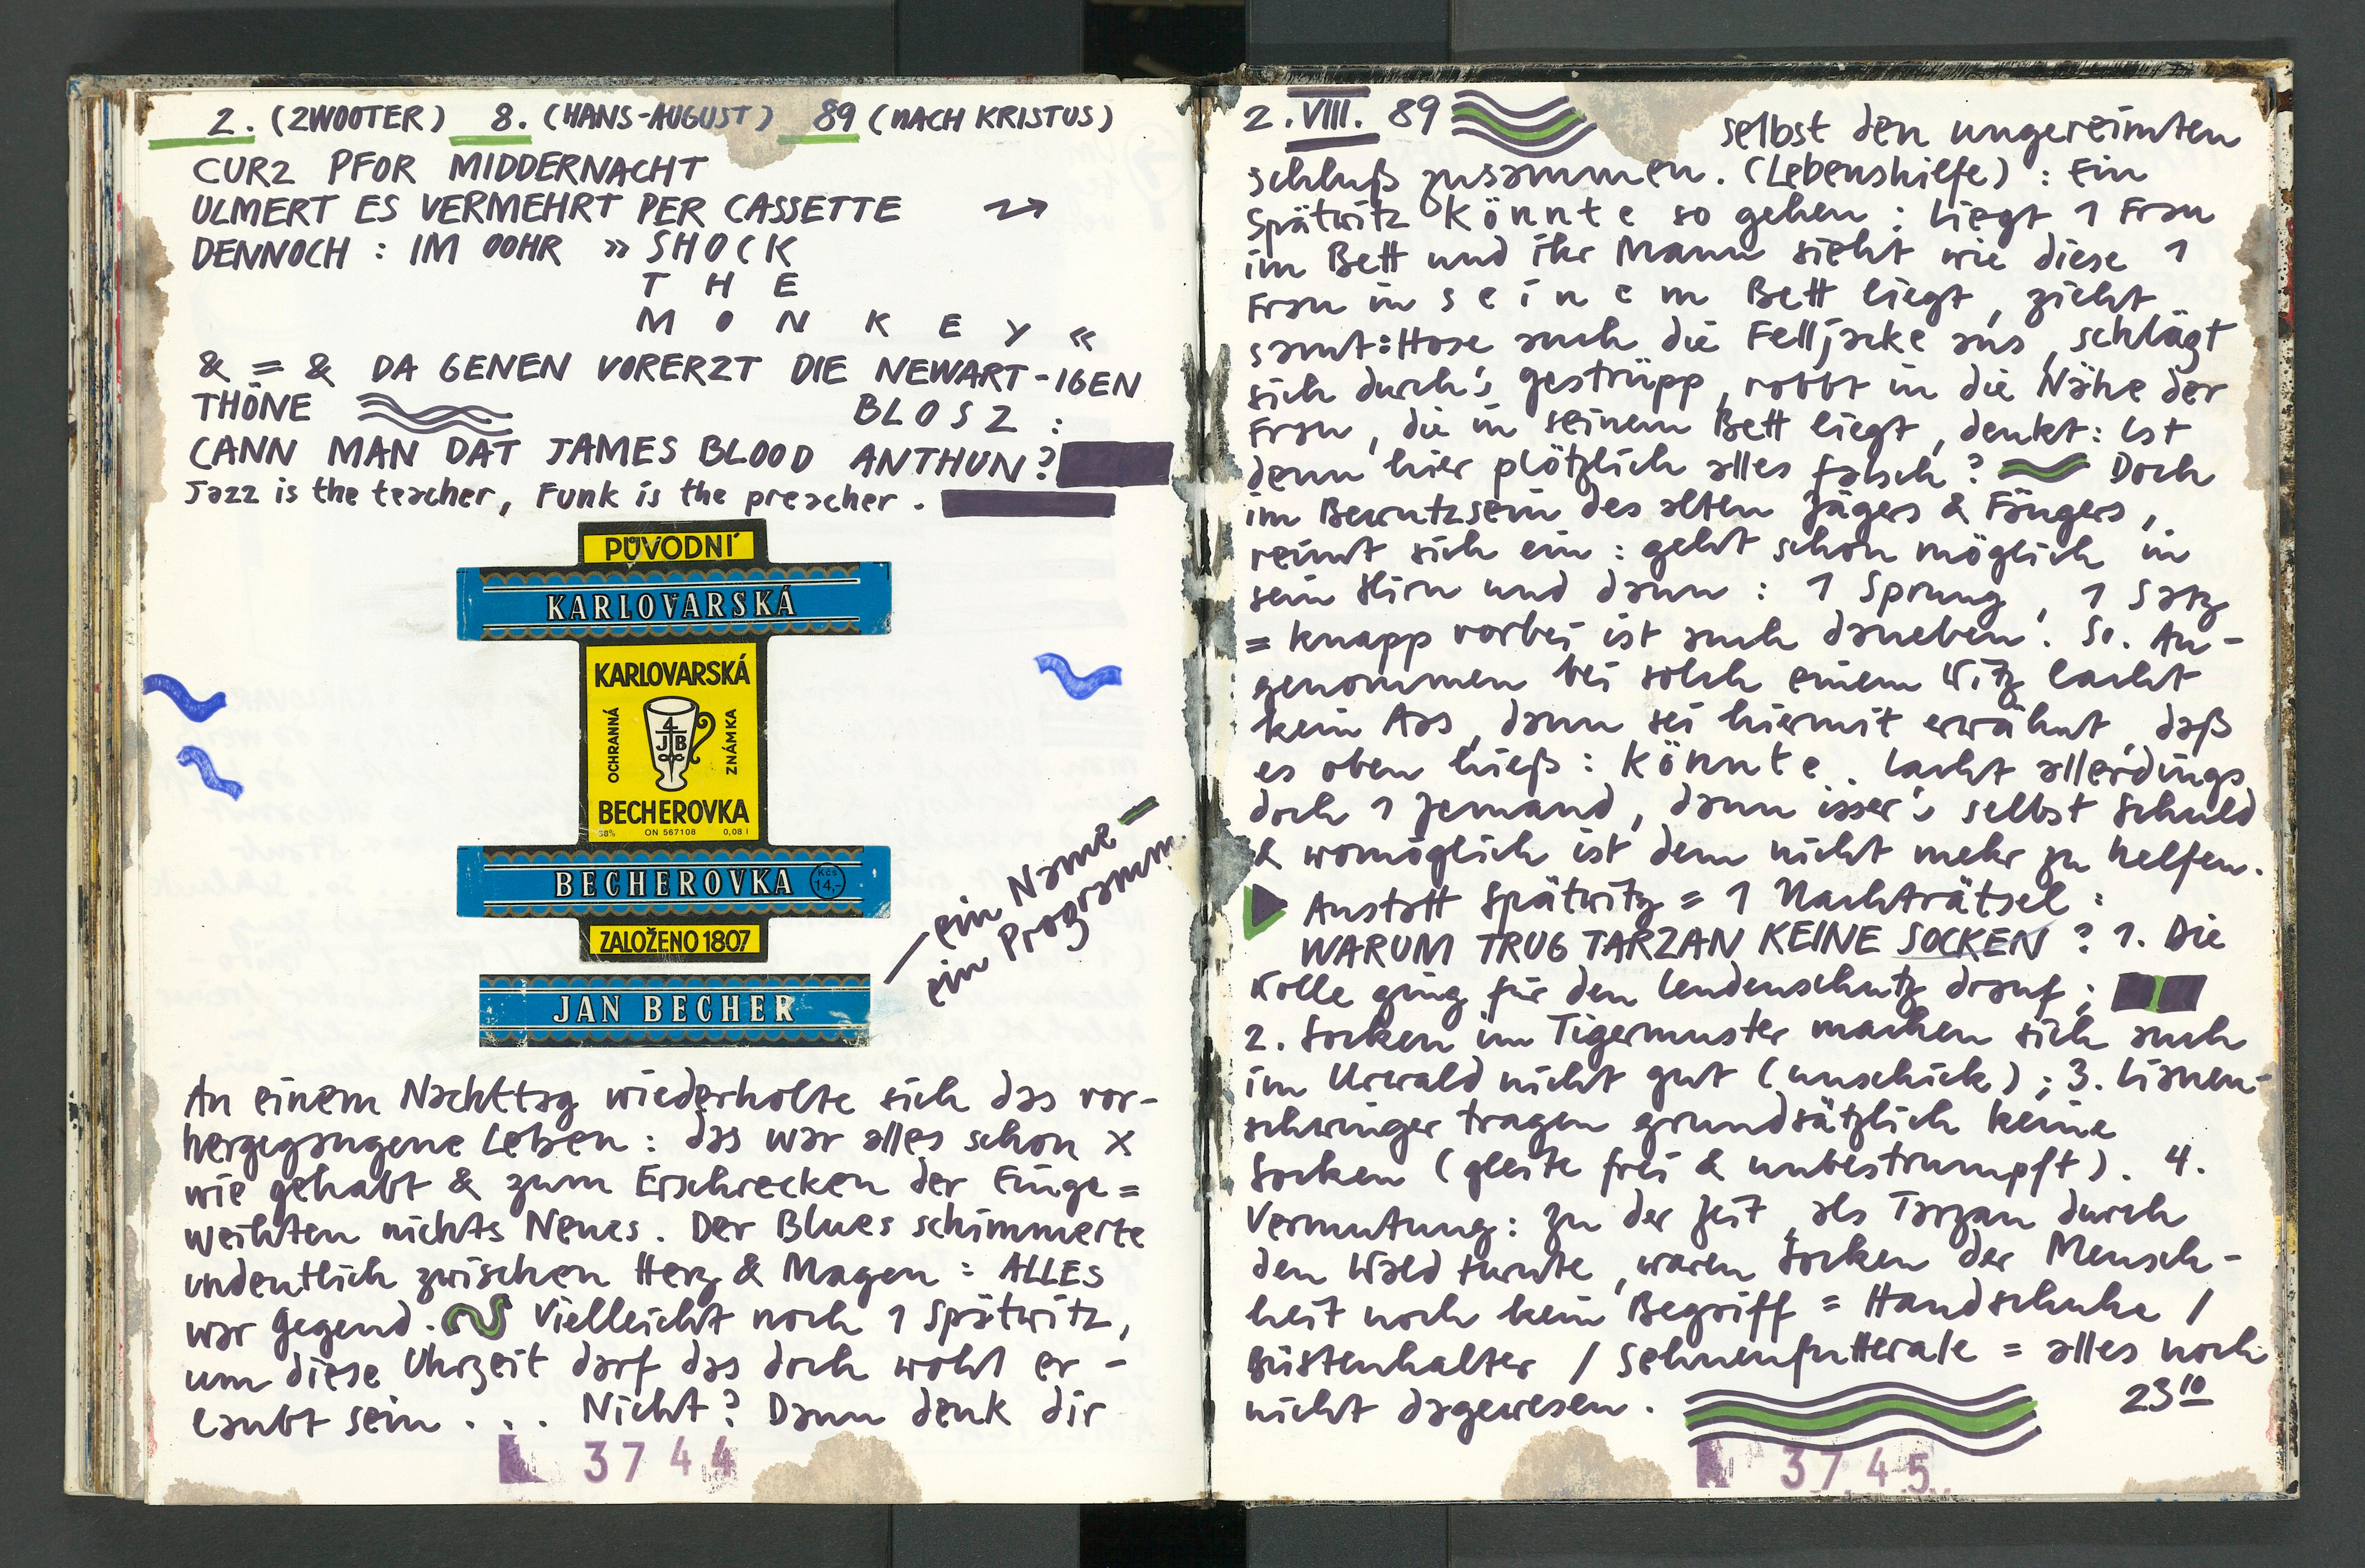 2. (ZWOOTER) 8. (HANS-AUGUST) 89 (NACH KRISTUS)
CURZ PFOR MIDDERNACHT
ULMERT ES VERMEHRT PER CASSETTE
DENNOCH : IM OOHR » SHOCK
T H E
M O N K E Y «
& = & DA GENEN VORERZT DIE NEWART-IGEN
THÖNE BLOSZ :
CANN MAN DAT JAMES BLOOD ANTHUN?
Jazz is the teacher, Funk is the preacher .
PŮVODNÍ
KARLOVARSKÁ
KARLOVARSKÁ
OCHRANNÁ
4
JB
ZNÁMKA
BECHEROVKA
38% ON 567108 0,08 l
BECHEROVKA Kčs 14,-
ZALOŽENO 1807
JAN BECHER
– ein Name –
ein Programm
An einem Nachttag wiederholte sich das vor-
hergegangene Leben : das war alles schon x
wie gehabt & zum Erschrecken der Einge=
weihten nichts Neues. Der Blues schimmerte
undentlich zwischen Herz & Magen : ALLES
war Gegend. Vielleicht noch 1 Spätwitz,
um diese Uhrzeit darf das doch wohl er-
laubt sein . . . Nicht? Dann denk dir
3744
2. VIII. 89 selbst den ungereimten
schluß zusammen. (Lebenshilfe) : Ein
Spätwitz könnte so gehen : Liegt 1 Frau
im Bett und ihr Mann sieht wie diese 1
Frau in s e i n e m Bett liegt, zieht
samt:Hose auch die Felljacke aus, schlägt
sich durch's gestrüpp, robbt in die Nähe der
Frau, die in seinem Bett liegt, denkt: ist
denn hier plötzlich alles falsch? Doch
im Bewutzsein des alten Jägers & Fängers,
reimt sich ein : geht schon möglich in
sein Hirn und dann : 1 Sprung, 1 Satz
= knapp vorbei ist auch daneben! So. An-
genommen bei solch einem Witz lacht
kein Aas, dann sei hiermit erwähnt, daß
es oben hieß : könnte. Lacht allerdings
doch 1 Jemand, dann isser's selbst Schuld
& womöglich ist dem nicht mehr zu helfen.
Anstatt Spätwitz = 1 Nachträtsel :
WARUM TRUG TARZAN KEINE SOCKEN ? 1. Die
Wolle ging für den Lendenschutz drauf ;
2. Socken im Tigermuster machen sich auch
im Urwald nicht gut (unschick) ; 3. Lianen-
schwinger tragen grundsätzlich keine
Socken (gleite frei & unbestrumpft). 4.
Vermutung: zu der Zeit, als Tarzan durch
den Wald turnte, waren Socken der Mensch-
heit noch kein Begriff = Handschuhe /
Büstenhalter / Sehnenfutterale = alles noch
nicht dagewesen. 23 10
3745